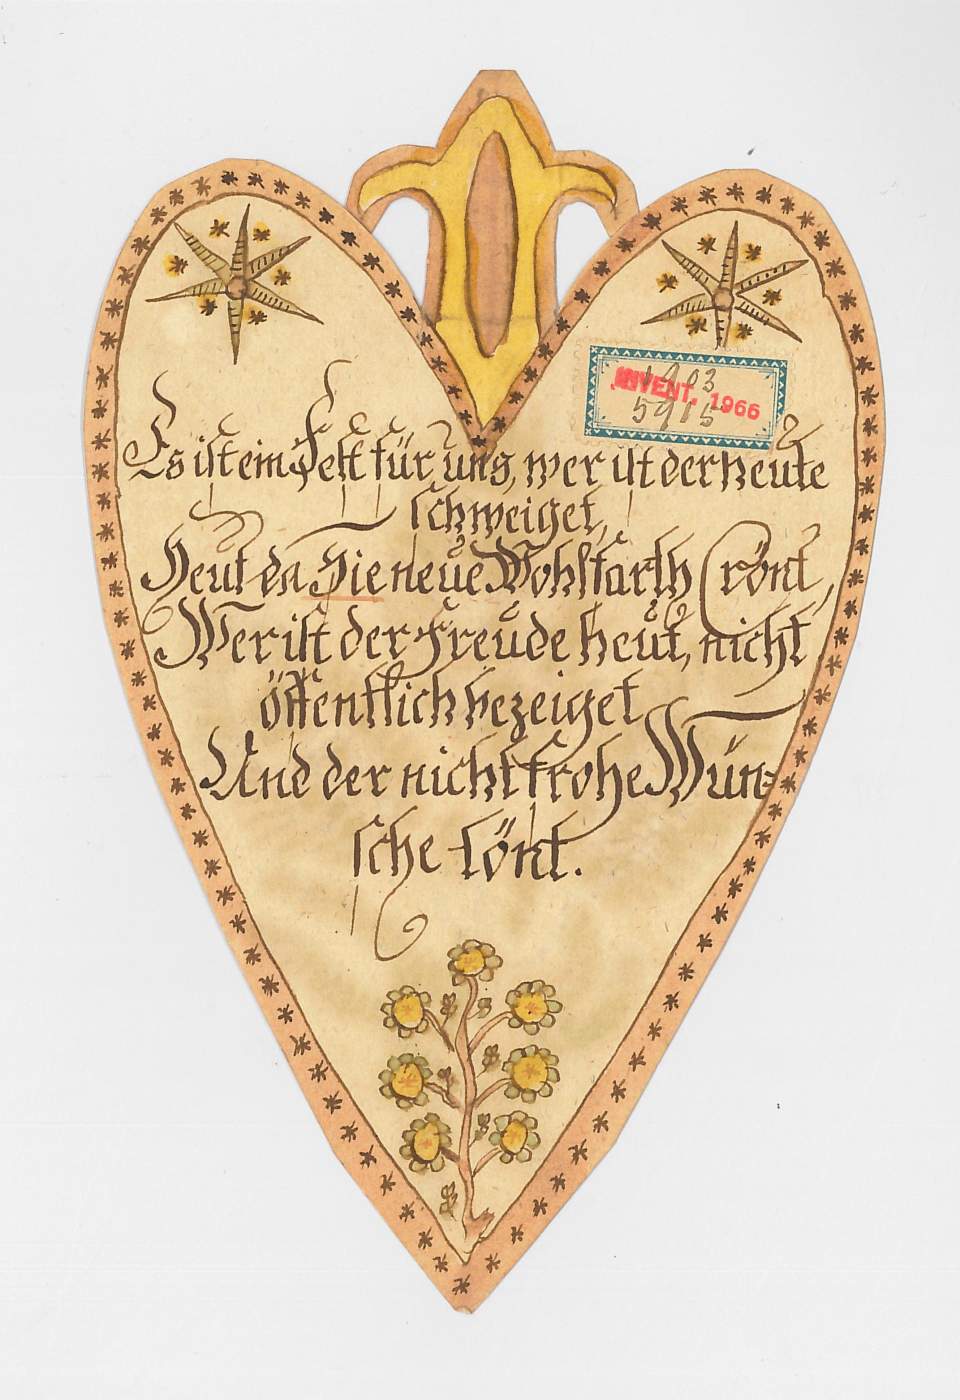 1903
INVENT. 1966
5915
Es ist ein Fest für uns, wer ist der heute
schweiget,
Heut da Sie neue Wohlfarth Crönt,
Wer ist der Freude heut, nicht
öffentlich bezeiget
Und der nicht frohe Wün=
sche tönt.